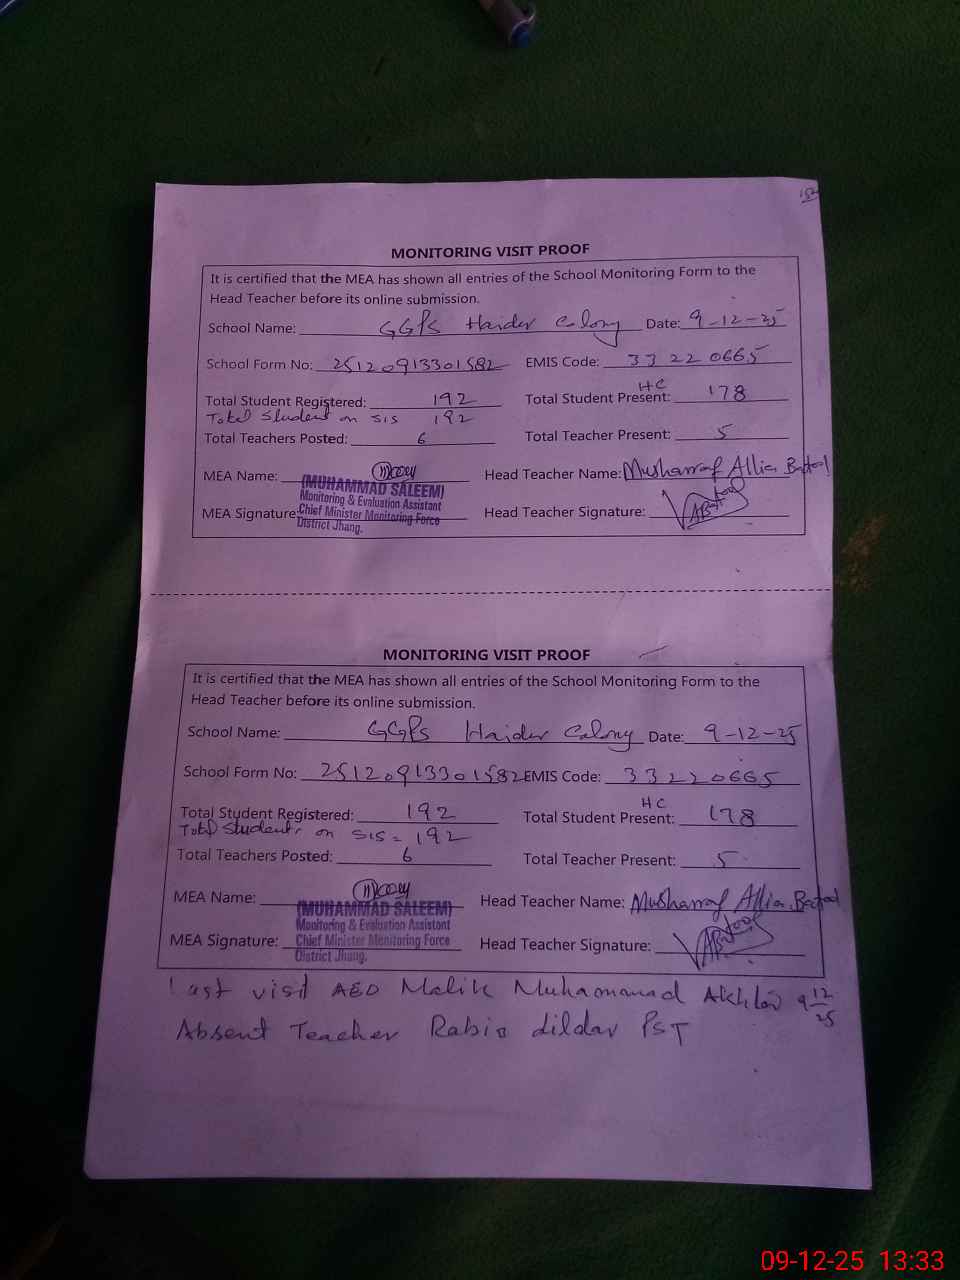 MONITORING VISIT PROOF
It is certified that the MEA has shown all entries of the School Monitoring Form to the
Head Teacher before its online submission.
School Name: GGPS Haider Colony Date: 9-12-25
School Form No: 25120913301582 EMIS Code: 33220665
HC
Total Student Registered: 192 Total Student Present: 178
Total Student on SIS 192
Total Teachers Posted: 6 Total Teacher Present: 5
MEA Name: Head Teacher Name: Musharraf Allia Batool
(MUHAMMAD SALEEM)
Monitoring & Evaluation Assistant
MEA Signature: Chief Minister Monitoring Force Head Teacher Signature: ABatool
District Jhang.
MONITORING VISIT PROOF
It is certified that the MEA has shown all entries of the School Monitoring Form to the
Head Teacher before its online submission.
School Name: GGPS Haider Colony Date: 9-12-25
School Form No: 25120913301582 EMIS Code: 33220665
HC
Total Student Registered: 192 Total Student Present: 178
Total Students on SIS = 192
Total Teachers Posted: 6 Total Teacher Present: 5
MEA Name: Head Teacher Name: Musharraf Allia Batool
(MUHAMMAD SALEEM)
Monitoring & Evaluation Assistant
MEA Signature: Chief Minister Monitoring Force Head Teacher Signature: ABatool
District Jhang.
Last visit AEO Malik Muhammad 9 12/25
Absent Teacher Rabia dildar PST
09-12-25 13:33